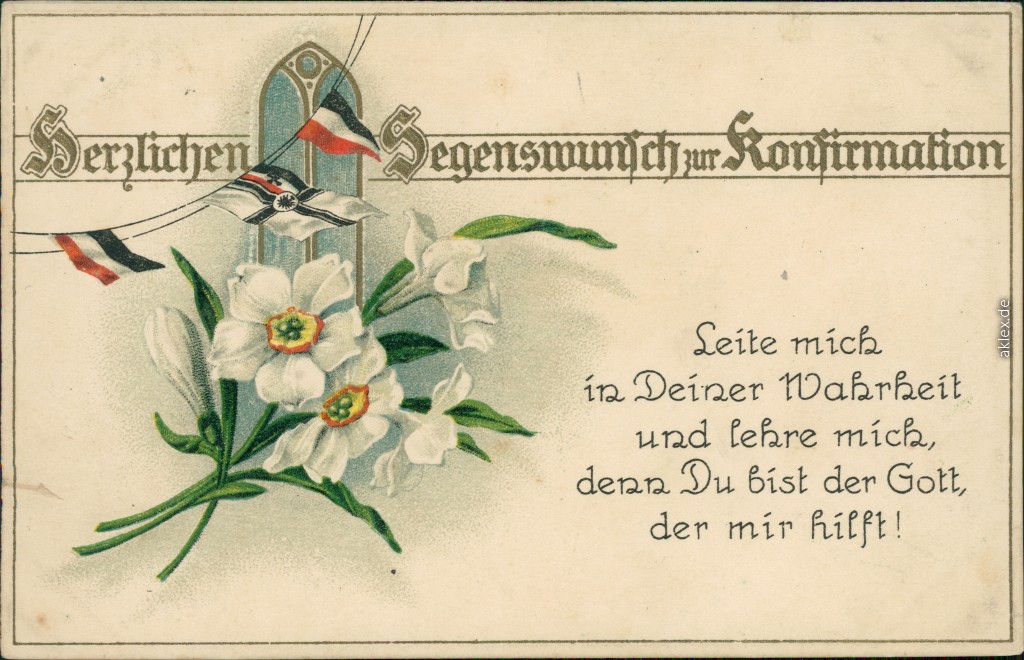 Herzlichen Segenswunsch zur Konfirmation
Leite mich
in Deiner Wahrheit
und lehre mich,
denn Du bist der Gott,
der mir hilft!
aklex.de